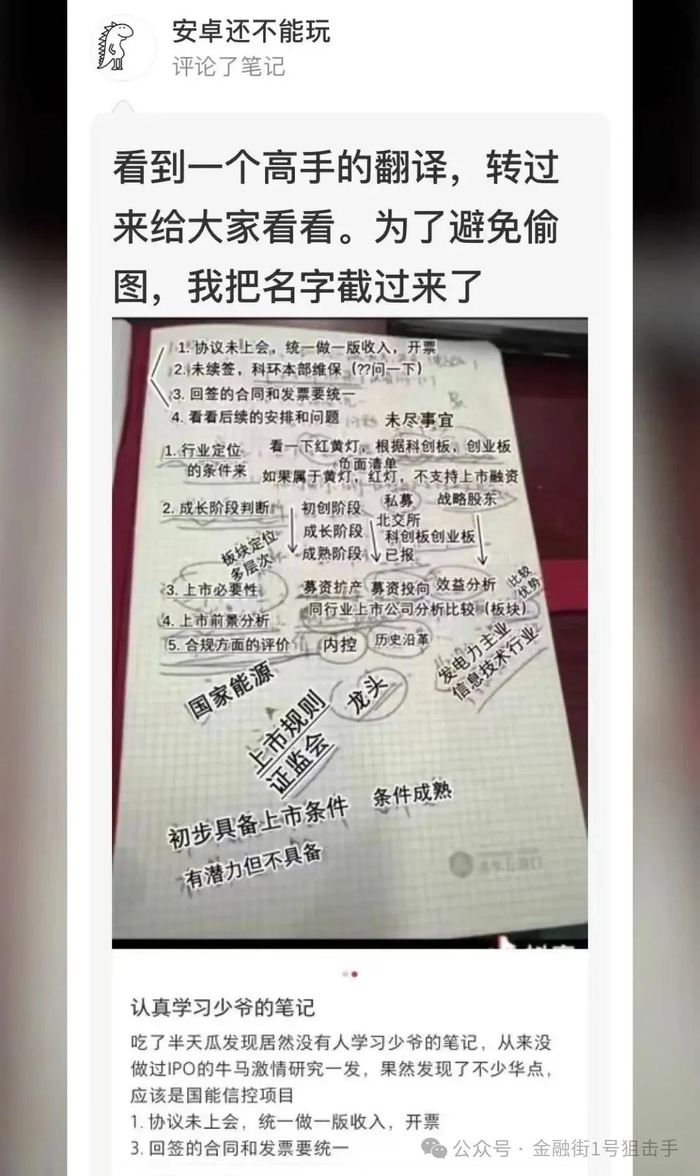 安卓还不能玩
评论了笔记
看到一个高手的翻译，转过
来给大家看看。为了避免偷
图，我把名字截过来了
1. 协议未上会，统一做一版收入，开票
2.未续签，科环本部维保（??问一下）
3. 回签的合同和发票要统一
4. 看看后续的安排和问题
未尽事宜
1. 行业定位
的条件来
看一下红黄灯，根据科创板，创业板
负面清单
如果属于黄灯，红灯，不支持上市融资
2. 成长阶段判断
初创阶段
私募
战略股东
北交所
成长阶段
科创板创业板
成熟阶段
已报
板块定位
多层次
3. 上市必要性
募资扩产
募资投向
效益分析
比较
优势
同行业上市公司分析比较（板块）
4. 上市前景分析
5. 合规方面的评价
内控
历史沿革
发电力主业
信息技术行业
国家能源
龙头
上市规则
证监会
初步具备上市条件
条件成熟
有潜力但不具备
认真学习少爷的笔记
吃了半天瓜发现居然没有人学习少爷的笔记，从来没
做过IPO的牛马激情研究一发，果然发现了不少华点，
应该是国能信控项目
1. 协议未上会，统一做一版收入，开票
3. 回签的合同和发票要统一
公众号 · 金融街1号狙击手